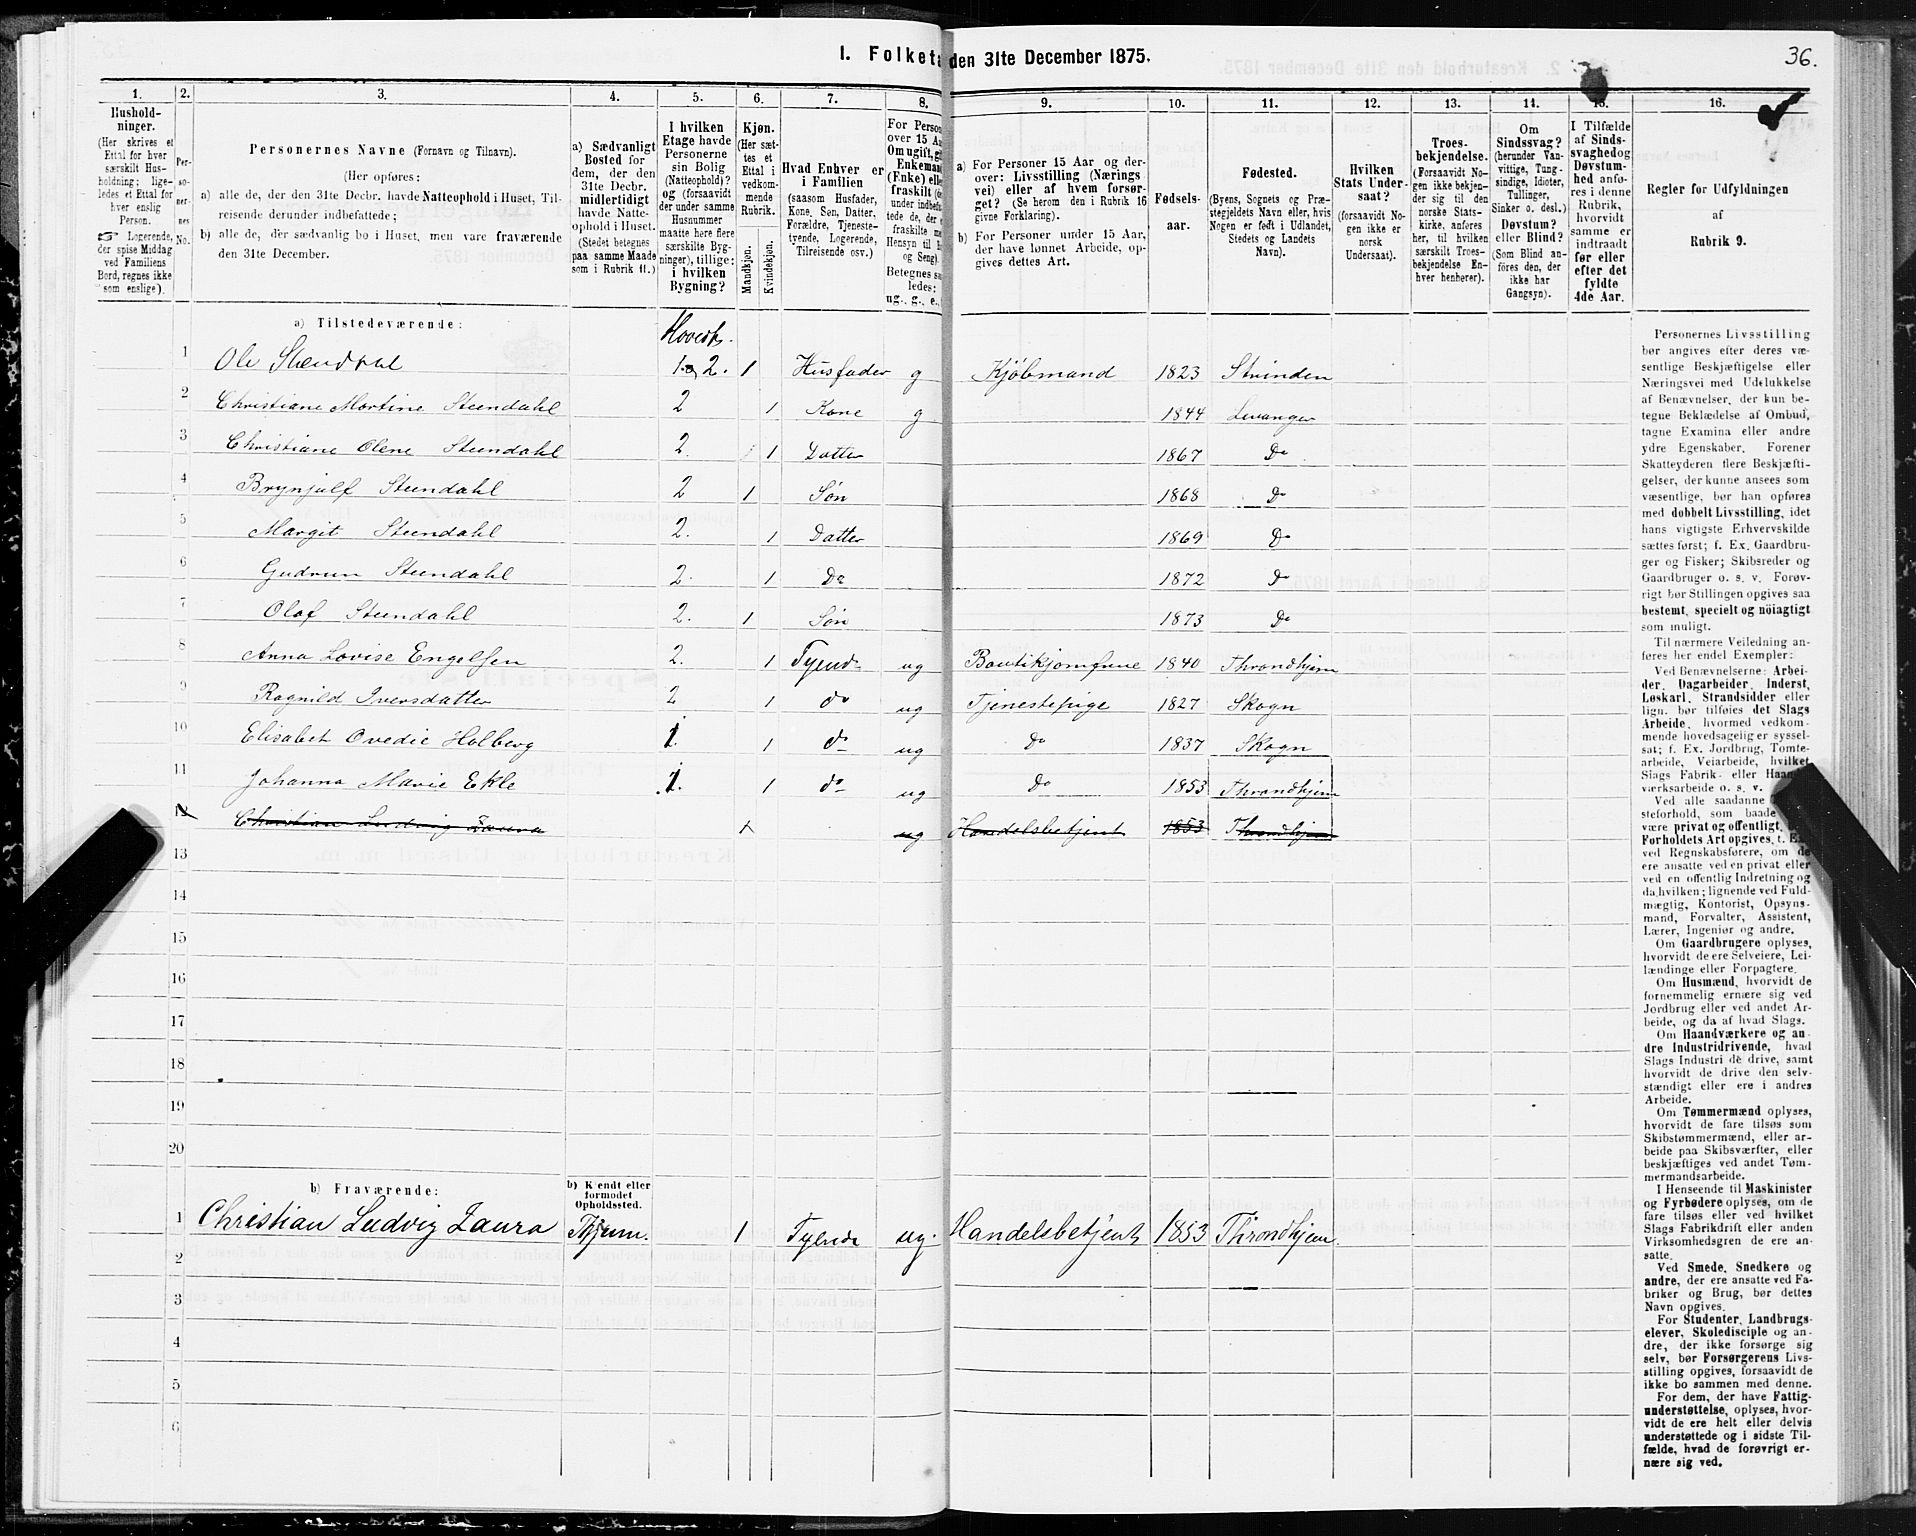 36.
I. Folketæ den 31te December 1875.
1. 2. 3. 4. 5. 6. 7. 8. 9. 10. 11. 12. 13. 14. 15. 16.
Hushold-
ninger.
(Her skrives et
Ettal for hver
særskilt Hus-
holdning; lige-
ledes et Ettal for
hver enslig
Person.
☞ Logerende,
der spise Middag
ved Familiens
Bord, regnes ikke
som enslige).
Per-
so-
ner-
nes
No.
Personernes Navne (Fornavn og Tilnavn).
(Her opføres:
a) alle de, der den 31te Decbr. havde Natteophold i Huset, Til-
reisende derunder indbefattede;
b) alle de, der sædvanlig bo i Huset, men vare fraværende
den 31te December.
a) Sædvanligt
Bosted for
dem, der den
31te Decbr.
midlertidigt
havde Natte-
ophold i Huset.
(Stedet betegnes
paa samme Maade
som i Rubrik 11.)
I hvilken
Etage havde
Personerne
sin Bolig
(Natteophold)?
og (forsaavidt
der under samme
Husnummer
maatte høre flere
særskilte Byg-
ninger), tillige:
i hvilken
Bygning?
Kjøn.
(Her sæt-
tes et
Ettal i
vedkom-
mende
Rubrik.
Mandkjøn.
Kvindekjøn.
Hvad Enhver er
i Familien
(saasom Husfader,
Kone, Søn, Datter,
Forældre, Tjeneste-
tyende, Logerende,
Tilreisende osv.)
For Person
over 15 Aa
Om ugift, gi
Enkemand
(Enke) elle
fraskilt
Betegnes sa
ledes:
ug., g., e.,
a) For Personer 15 Aar og der-
over: Livsstilling (Nærings
vei) eller af hvem forsør-
get? (Se herom den i Rubrik 16
givne Forklaring).
b) For Personer under 15 Aar,
der have lønnet Arbeide, op-
gives dettes Art.
Fødsels-
aar.
Fødested.
(Byens, Sognets og Præ-
stegjeldets Navn eller, hvis
Nogen er født i Udlandet,
Stedets og Landets
Navn).
Hvilken
Stats Under-
saat?
(forsaavidt No-
gen ikke er
norsk
Undersaat).
Troes-
bekjendelse.
(Forsaavidt No-
gen ikke bekjen-
der sig til den
norske Stats-
kirke, anføres
her, til hvilken
særskilt Troes-
bekjendelse En-
hver henhører).
Om
Sindssvag?
(herunder Van-
vittige, Tung-
sindige, Idioter,
Tullinger,
Sinker o. desl.)
Døvstum?
eller Blind?
(Som Blind an-
føres den, der
ikke har
Gangsyn).
I Tilfælde
af Sinds-
svaghed og
Døvstum-
hed anfø-
res i denne
Rubrik,
hvorvidt
samme er
indtraadt
før eller
efter det
fyldte
4de Aar.
Regler for Udfyldningen
af
Rubrik 9.
a) Tilstedeværende:
Hovedb.
1 Ole Steendahl 1 og 2. 1 Husfader g Kjøbmand 1823 Strinden
2 Christiane Martine Steendahl 2 1 Kone g 1844 Levanger
3 Christiane Olene Steendahl 2. 1 Datter 1867 Do
4 Brynjulf Steendahl 2 1 Søn 1868 Do
5 Margit Steendahl 2. 1 Datter 1869 Do
6 Gudrun Steendahl 2. 1 Do 1872 Do
7 Olaf Steendahl 2. 1 Søn 1873 Do
8 Anna Lovise Engelsen 2. 1 Tyende ug Boutikjomfrue 1840 Throndhjem
9 Ragnild Iversdatter 2 1 do ug Tjenestepige 1827 Skogn
10 Elisabet Ovedie Holberg 1. 1 do ug Do 1837 Skogn
11 Johanna Marie Ekle 1. 1 do ug Do 1853 Throndhjem
12 Christian Ludvig Zaura 1 ug Handelsbetjent 1853 Throndhjem
13
14
15
16
17
18
19
20
b) Fraværende:
b) Kjendt eller
formodet
Opholdssted.
1 Christian Ludvig Zaura Thjem. 1 Tyende ug. Handelsbetjent 1853 Throndhjem.
2
3
4
5
6
Personernes Livsstilling
bør angives efter deres væ-
sentlige Beskjæftigelse eller
Næringsvei med Udelukkelse
af Benævnelser, der kun be-
tegne Beklædelse af Ombud,
tagne Examina eller andre
ydre Egenskaber. Forener
Skatteyderen flere Beskjæfti-
gelser, der kunne ansees som
væsentlige, bør han opføres
med dobbelt Livsstilling, idet
hans vigtigste Erhvervskilde
sættes først; f. Ex. Gaardbru-
ger og Fisker; Skibsreder og
Gaardbruger o. s. v. Forøv-
rigt bør Stillingen opgives saa
bestemt, specielt og nöiagtigt
som muligt.
Til nærmere Veiledning an-
føres her endel Exempler:
Ved Benævnelserne: Arbei-
der, Dagarbeider, Inderst,
Løskarl, Strandsidder eller
lign. bør tilføies det Slags
Arbeide, hvormed vedkom-
mende hovedsagelig er syssel-
sat; f. Ex. Jordbrug, Tomte-
arbeide, Veiarbeide, hvilket
Slags Fabrik- eller Haand-
værksarbeide o. s. v.
Ved alle saadanne
steforhold, som baade
være privat og offentligt,
Forholdets Art opgives, t. Ex.
ved Regnskabsførere, om de
ere ansatte ved en privat eller
ved en offentlig Indretning og
da hvilken; lignende ved Fuld-
mægtig, Kontorist, Opsyns-
mand, Forvalter, Assistent,
Lærer, Ingeniør og andre.
Om Gaardbrugere oplyses,
hvorvidt de ere Selveiere, Lei-
lændinge eller Forpagtere.
Om Husmænd, hvorvidt de
fornemmelig ernære sig ved
Jordbrug eller ved andet Ar-
beide, og da af hvad Slags.
Om Haandværkere og an-
dre Industridrivende, hvad
Slags Industri de drive, samt
hvorvidt de drive den selv-
stændigt eller ere i andres
Arbeide.
Om Tømmermænd oplyses,
hvorvidt de fare tilsøs som
Skibstømmermænd, eller ar-
beide paa Skibsværfter, eller
beskjæftiges ved andet Tøm-
mermandsarbeide.
I Henseende til Maskinister
og Fyrbødere oplyses, om de
fare tilsøs eller ved hvilket
Slags Fabrikdrift eller anden
Virksomhedsgren de ere an-
satte.
Ved Smede, Snedkere og
andre, der ere ansatte ved Fa-
briker og Brug, bør dettes
Navn opgives.
For Studenter, Landbrugs-
elever, Skoledisciple og an-
dre, der ikke forsørge sig
selv, bør Forsørgerens Livs-
stilling opgives, forsaavidt de
ikke bo sammen med denne.
For dem, der have Fattig-
understøttelse, oplyses, hvor-
vidt de ere helt eller delvis
understøttede og i sidste Til-
fælde, hvad de forøvrigt er-
nære sig ved.